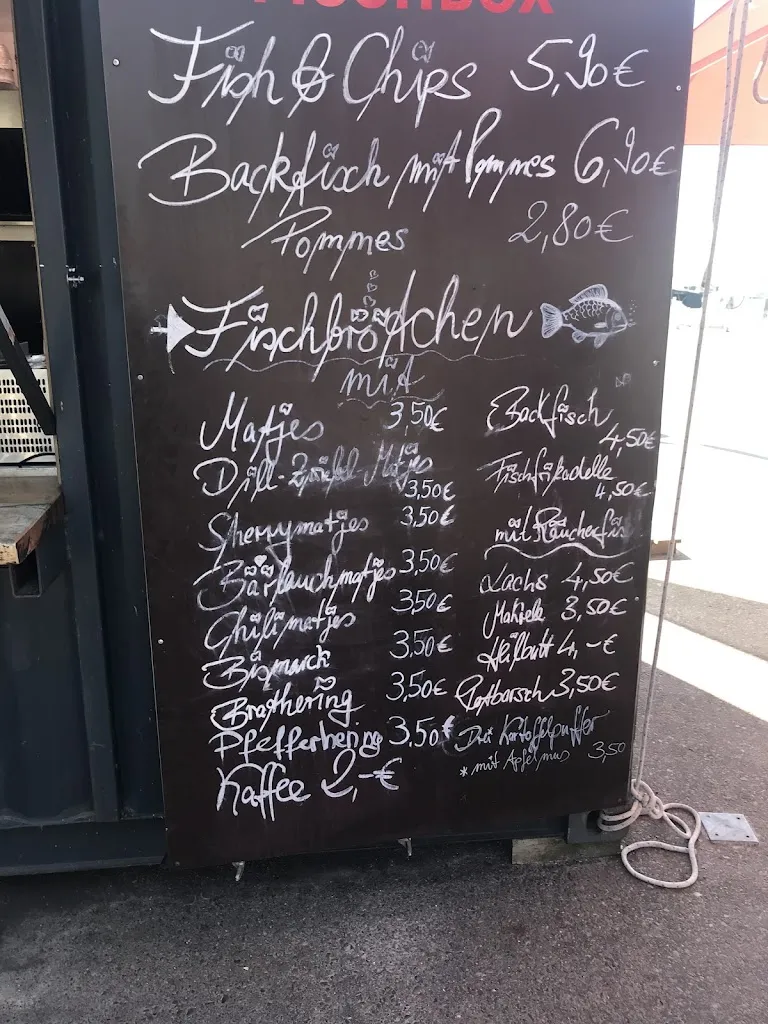 FISCHBOX
Fish & Chips 5,90€
Backfisch mit Pommes 6,90€
Pommes 2,80€
Fischbrötchen
mit
Matjes 3,50€
Dill-Zwiebel-Matjes 3,50€
Sherrymatjes 3,50€
Bärlauchmatjes 3,50€
Chilimatjes 3,50€
Bismarck 3,50€
Brathering 3,50€
Pfefferhering 3,50€
Kaffee 2,-€
Backfisch
4,50€
Fischfrikadelle
4,50€
mit Räucherfi
Lachs 4,50€
Makrele 3,50€
Heilbutt 4,-€
Rotbarsch 3,50€
Drei Kartoffelpuffer
* mit Apfelmus 3,50